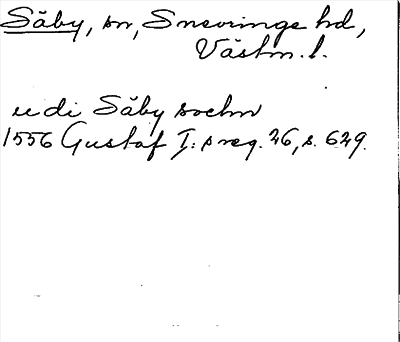 Säby, sn, Snevringe hd,
Västm. l.
udi Säby sochn
1556 Gustaf I: s reg. 26, s. 629.